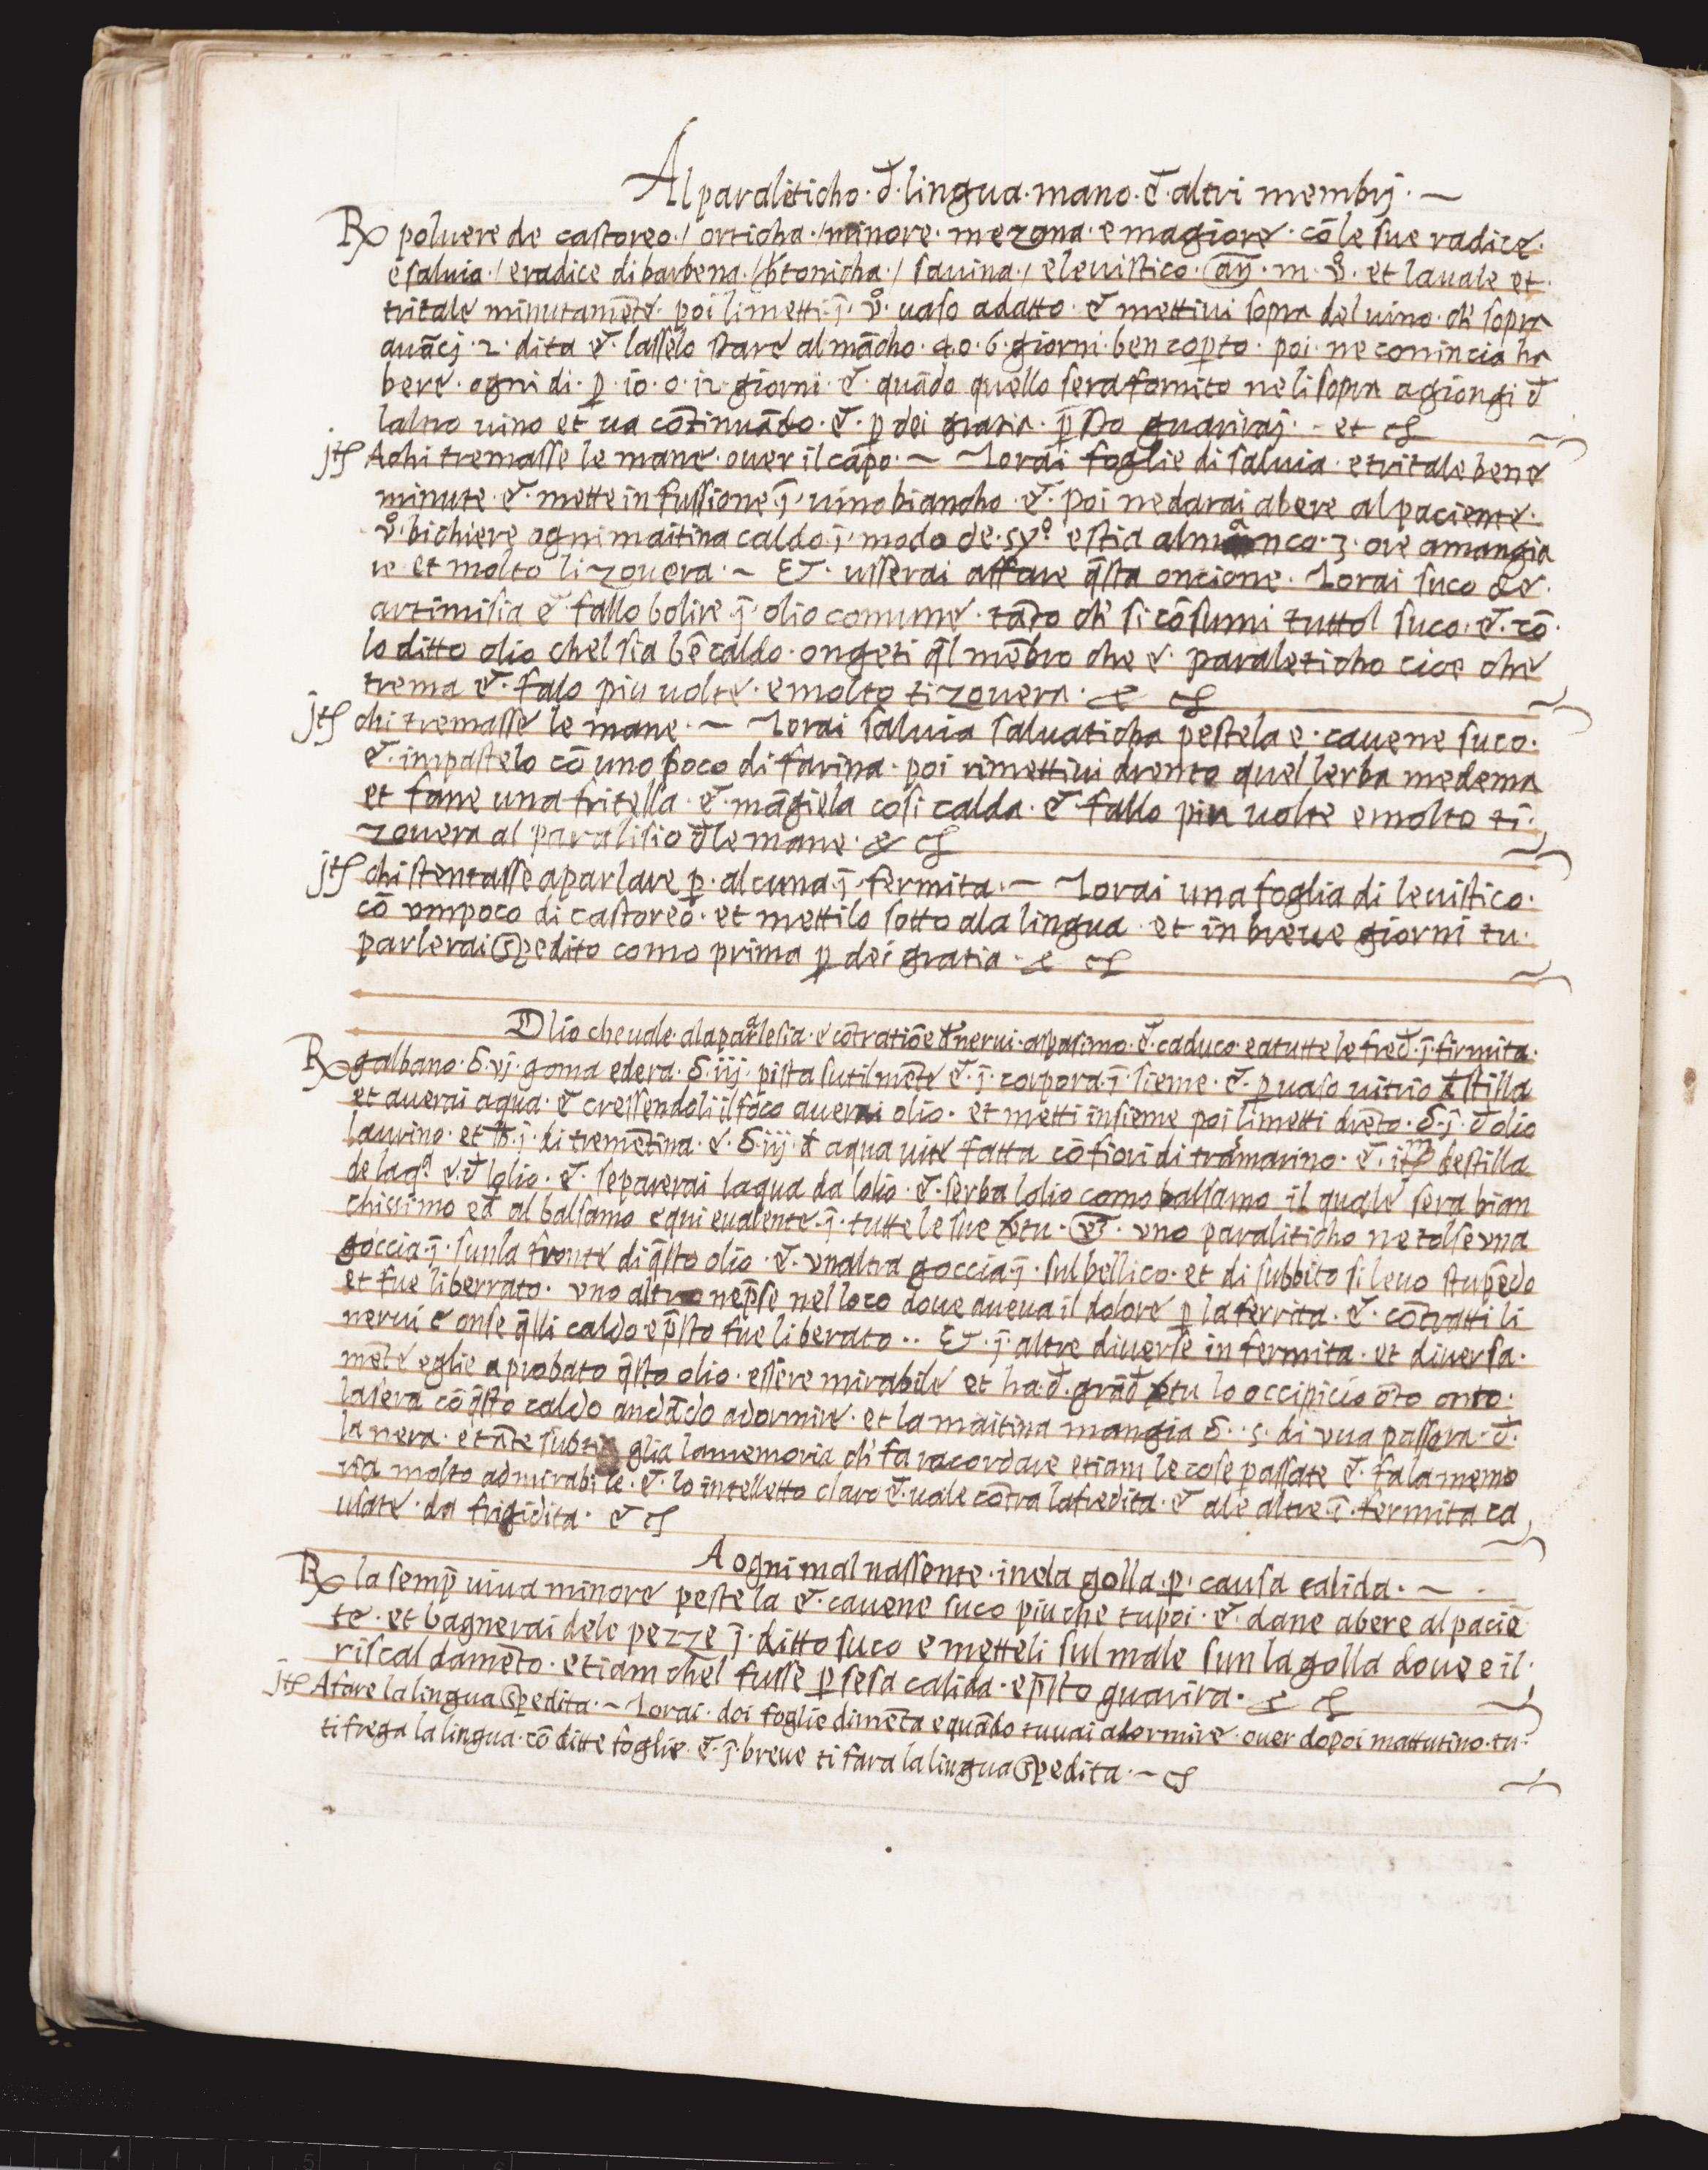 Al paraleticho · d̄ · lingua · mano · et̄ altri membrj ·~
℞ poluere de castoreo·/ orticha·/minore· mezana· e magiore· cō le sue radice·
e saluia·/ e radice di barbena·/ b̄tonicha·/ sauina·/ e leuistico· añ· m· v̊· et lauale et·
tritale minutamēte· poi li metti· ī· v̊· uaso adatto· et̄ mettiui sopra del uino· ch' sopra
auācj· 2· dita et̄· lasselo stare al mācho· 4· o· 6· giorni· ben coꝑto· poi· ne comincia ha
bere· ogni di· ꝑ· io· o· i2· giorni· et̄· quādo quello sera fornito neli sopra agiongi d̄
laltro uino et ua cōtinuādo· et̄· ꝑ dei gratia· p̄sto guariraj· - et cʃ
jtʃ Achi tremasse le mane· ouer il capo·~ Torai foglie di saluia· e tritale bene
minute· et̄· mette in fussione· ī· uino biancho· et̄· poi ne darai abere al paciente·
v̊· bichiere ogni maitina caldo· ī· modo de· syº· e stia almanco· 3· ore amangia
re· et molto li zouera·~ Et· usserai affare q̄sta oncione· Torai suco de·
artimisia et̄ fallo bolire· ī· olio comune· tāto ch' si cōsumi tutto l suco· et̄· cō·
lo ditto olio chel sia bē caldo· ongeti q̄l mēbro che e· paraleticho cioe che
trema et̄· falo piu uolte· e molto ti zouera· & cʃ
jtʃ chi tremasse le mane·~ Torai saluia saluaticha pestela e· cauene suco·
et̄· impastelo cō uno poco di farina· poi rimettiui drento quel lerba medema
et fane una fritella· et̄· māgiela cosi calda· et̄ fallo piu uolte e molto ti·
zouera al paralisio d̄le mane· & cʃ
jtʃ chi stentasse aparlare ꝑ· alcuna· ī· fermita·~ Torai una foglia di leuistico·
cō vmpoco di castoreo· et mettilo sotto ala lingua· et in breue giorni tu·
parlerai spedito como prima ꝑ dei gratia· & cʃ
Olio che uale· ala parlesia· e cōtratiōe d̄ nerui· aspasimo· et̄· caduco· e a tutte le fred̄· ī· firmita·
℞ galbano· δ· vj· goma edera· δ· iij· pista sutilmēte et̄· ī· corpora· ī· sieme· et̄· ꝑ uaso uitrio d̄stilla
et auerai aqua· et̄ cressendoli il foco auerai olio· et metti insieme poi li metti drēto· δ· j· d̄ olio
laurino· et lb· j· di tremētina· e· δ· iij· d̄ aqua uite fatta cō fiori di tramarino· et̄· destilla
de laqª e· d̄ lolio· et̄· separerai laqua da lolio· et̄· serba lolio como balsamo il quale sera bian
chissimo ed̄ al balsamo equi eualente· ī· tutte le sue v̄tu· et̄· vno paraliticho ne tolse vna
goccia· j· sun la fronte di q̄sto olio· et̄· vnaltra goccia· j· sul bellico· et di subbito si leuo stupēdo
et fue liberrato· vno altro nep̄se nel loco doue aueua il dolore ꝑ la ferrita· et̄· cōtratti li
nerui e onse q̄lli caldo e p̄sto fue liberato·· Et· ī· altre diuerse in fermita· et diuersa·
mēte eglie aprobato q̄sto olio· essere mirabile et ha· d̄· grād̄ v̄tu lo occipicio ōto onto·
la sera cō q̄sto caldo andādo adormire· et la maitina mangia δ·· 5· di vua passera· d̄·
la nera· etāte subti glia la memoria ch' fa racordare etiam le cose passate et̄· fa la memo
ria molto admirabile· et̄· lo intelletto claro et̄· uale cōtra la fredita· et̄ ale altre· ī· fermita ca
usate· da frigidita· et̄ cʃ
A ogni mal nassente· in ela golla· ꝑ· causa calida·~
℞ la semp̄ uiua minore pestela et̄· cauene suco piu che tu poi· et̄· dane abere al paciē
te· et bagnerai dele pezze ī· ditto suco e metteli sul male sun la golla doue e il·
riscaldamēto· etiam chel fusse ꝑ sesa calida· e p̄sto guarira· & cʃ
jtʃ A fare la lingua spedita·~ Torai· doi foglie di mēta e quādo tu uai a dormire· ouer dopoi mattutino· tu·
ti frega la lingua· cō ditte foglie· et̄· ī· breue ti fara la lingua spedita·~ cʃ